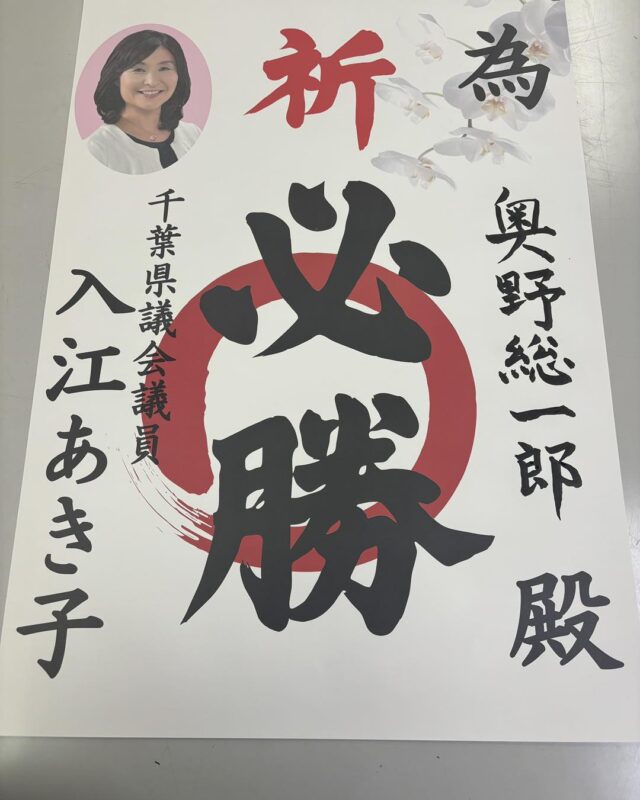 為
奥野総一郎 殿
祈
必勝
千葉県議会議員
入江あき子